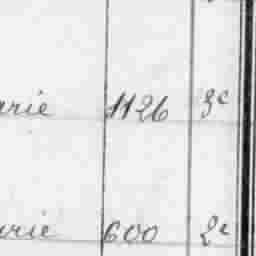 arie 1126 3e
arie 600 2e